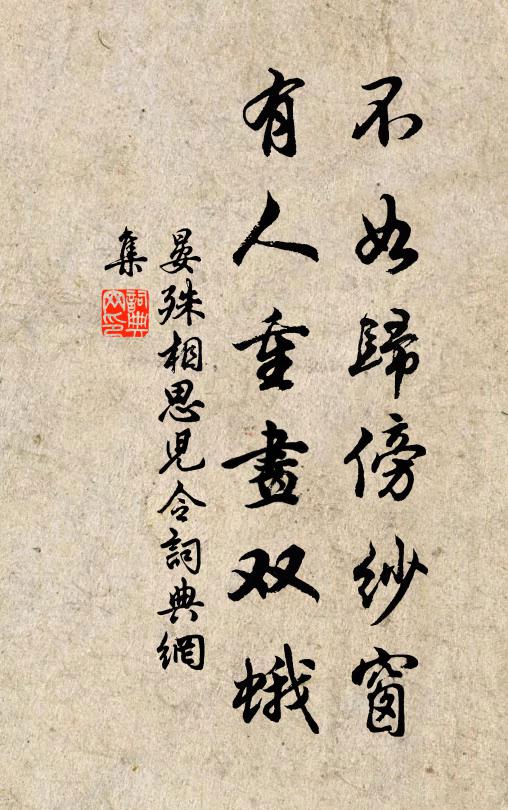 不如歸傍紗窗
有人重畫双蛾
晏殊相思兒令詞典網
集
詞典
网印